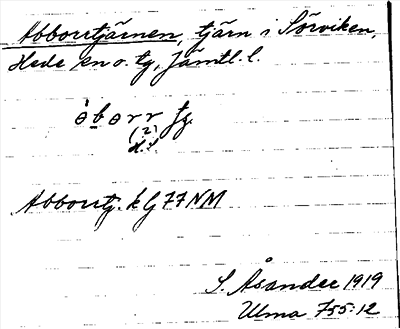 Abborrtjärnen, tjärn i Sörviken,
Hede sn o. tg, Jämtl. l.
àborr tj.
(?)
d.s.
Abborrtj. k G 77 NM
S. Åsander 1919
Ulma 755:12